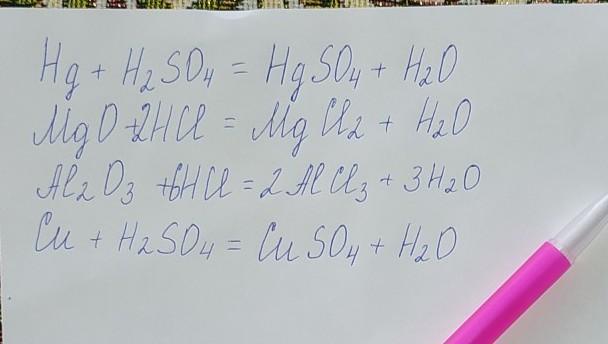 Hg + H₂SO₄ = HgSO₄ + H₂O
MgO + 2HCl = MgCl₂ + H₂O
Al₂O₃ + 6HCl = 2AlCl₃ + 3H₂O
Cu + H₂SO₄ = CuSO₄ + H₂O